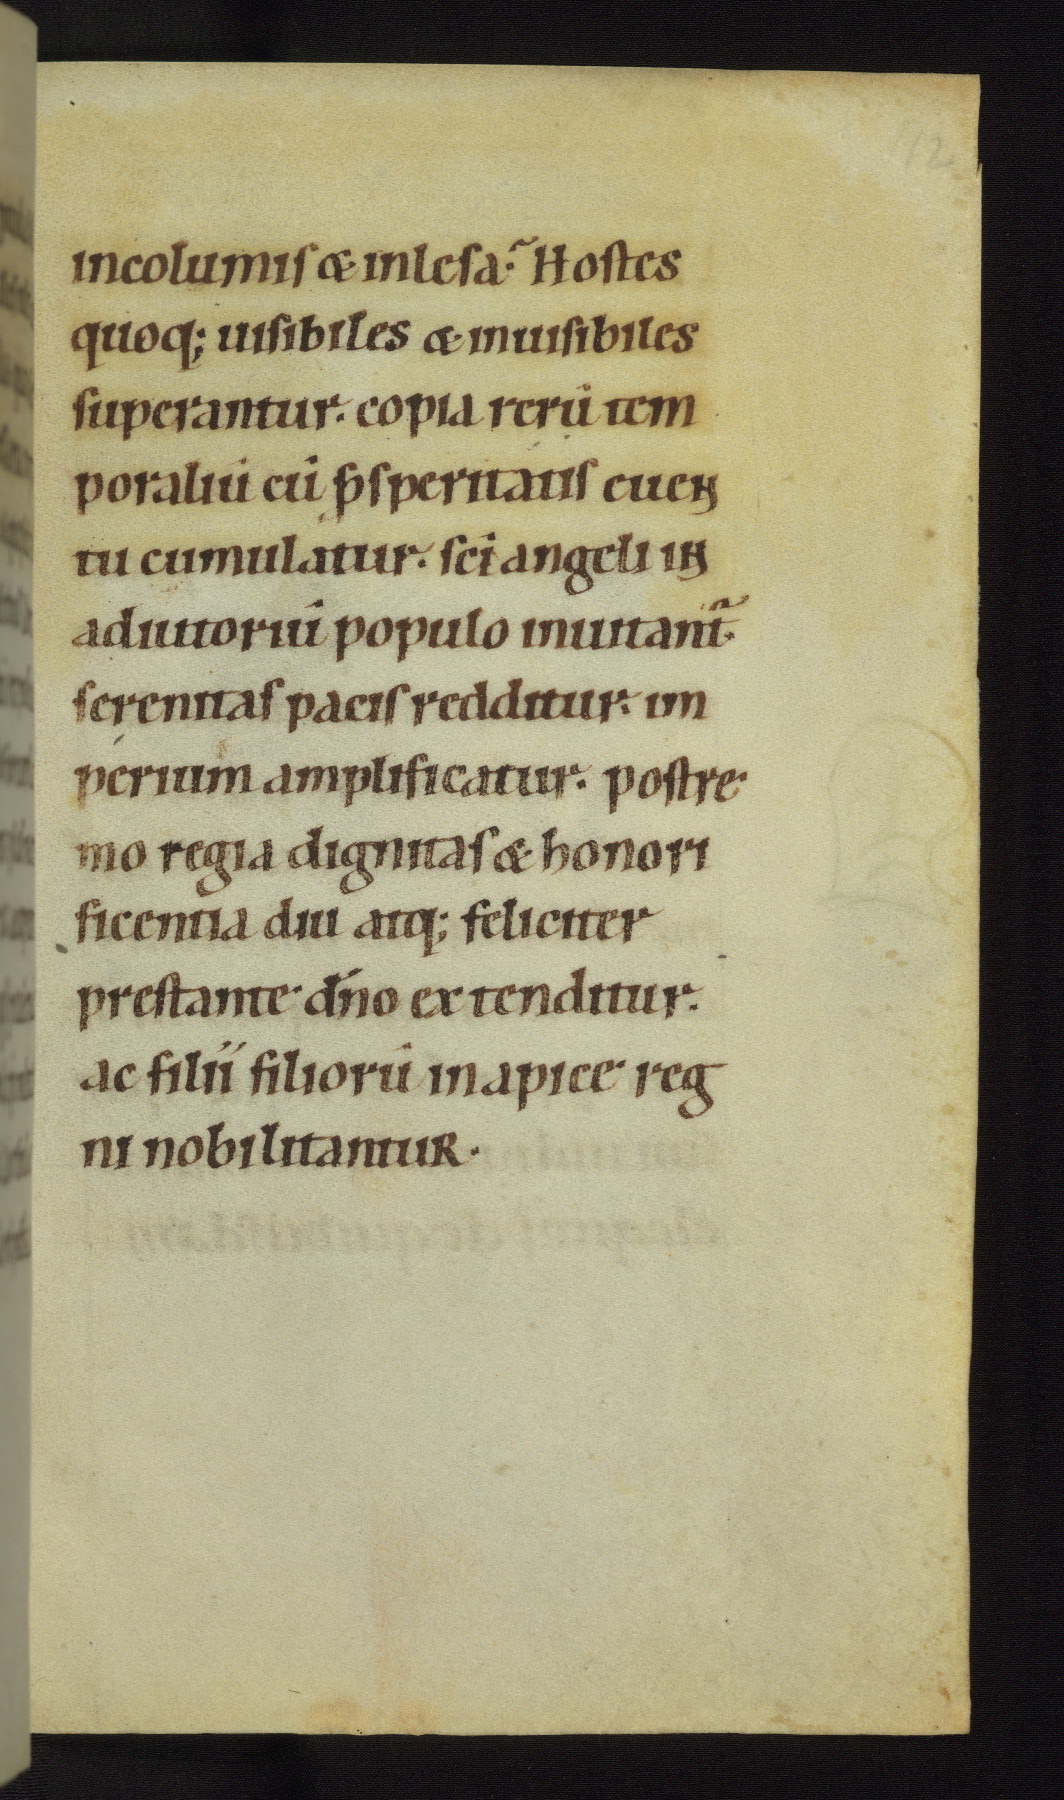 12
incolumis & inlesa. Hostes
quoq; uisibiles & inuisibiles
superantur. copia rerū tem
poraliū cū ꝓsperitatis euen
tu cumulatur. sc̄i angeli in
adiutoriū populo inuitant᷑.
serenitas pacis redditur. im
perium amplificatur. postre
mo regia dignitas & honori
ficentia diu atq; feliciter
prestante dn̄o extenditur.
ac filii filiorū in apice reg
ni nobilitantur.